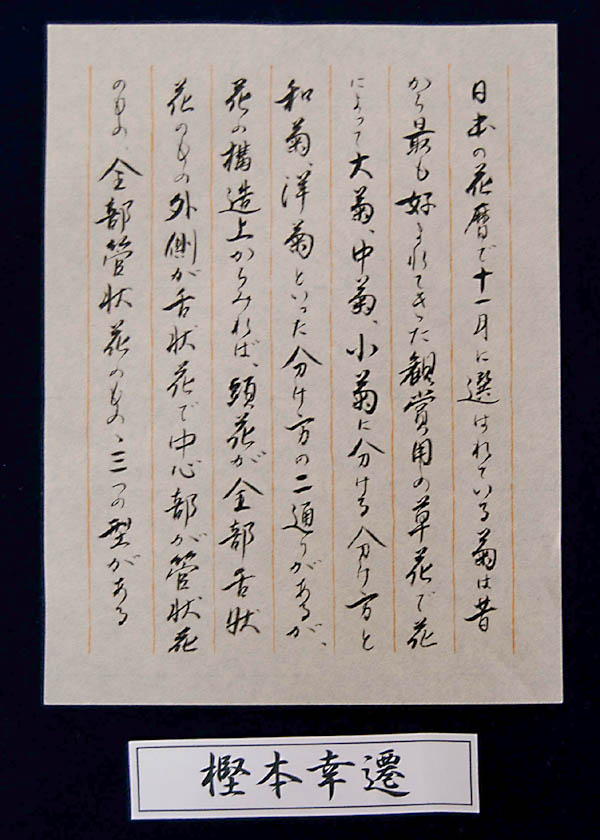 日本の花暦で十一月に選ばれている菊は昔
から最も好まれてきた観賞用の草花で花
によって大菊、中菊、小菊に分ける分け方と
和菊、洋菊といった分け方の二通りがあるが、
花の構造上からみれば、頭花が全部舌状
花のもの外側が舌状花で中心部が管状花
のもの、全部管状花のもの、三つの型がある
樫本幸遷